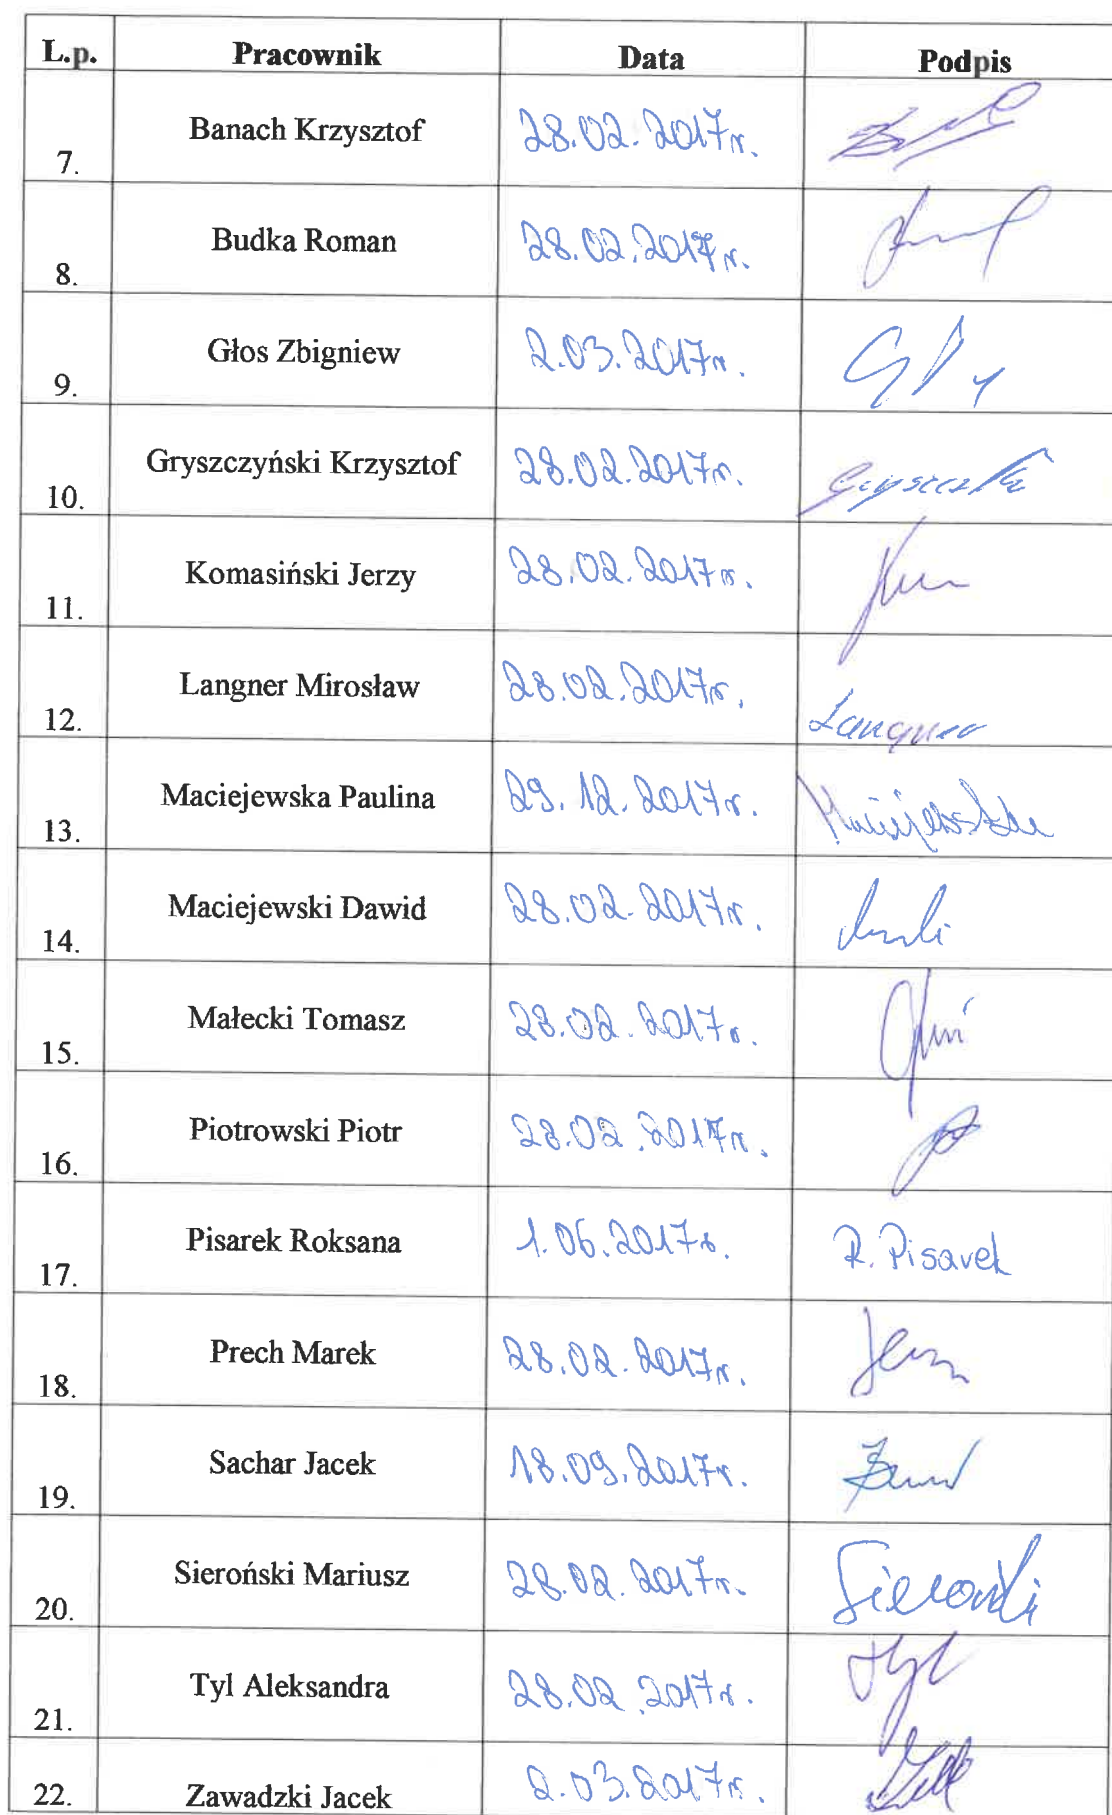 L.p. Pracownik Data Podpis
7. Banach Krzysztof 28.02.2017r.
8. Budka Roman 28.02.2017r.
9. Głos Zbigniew 2.03.2017r.
10. Gryszczyński Krzysztof 28.02.2017r.
11. Komasiński Jerzy 28.02.2017r.
12. Langner Mirosław 28.02.2017r. Langner
13. Maciejewska Paulina 29.12.2017r. Maciejewska
14. Maciejewski Dawid 28.02.2017r.
15. Małecki Tomasz 28.02.2017r.
16. Piotrowski Piotr 28.02.2017r.
17. Pisarek Roksana 1.06.2017r. R. Pisarek
18. Prech Marek 28.02.2017r.
19. Sachar Jacek 18.09.2017r.
20. Sieroński Mariusz 28.02.2017r. Sieroński
21. Tyl Aleksandra 28.02.2017r. Tyl
22. Zawadzki Jacek 2.03.2017r.